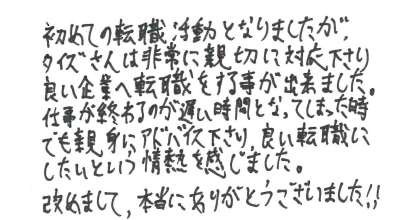 初めての転職活動となりましたが、
タイズさんは非常に親切に対応下さり
良い企業へ転職をする事が出来ました。
仕事が終わるのが遅い時間となってしまった時
でも親身にアドバイス下さり、良い転職に
したいという情熱を感じました。
改めまして、本当にありがとうございました!!